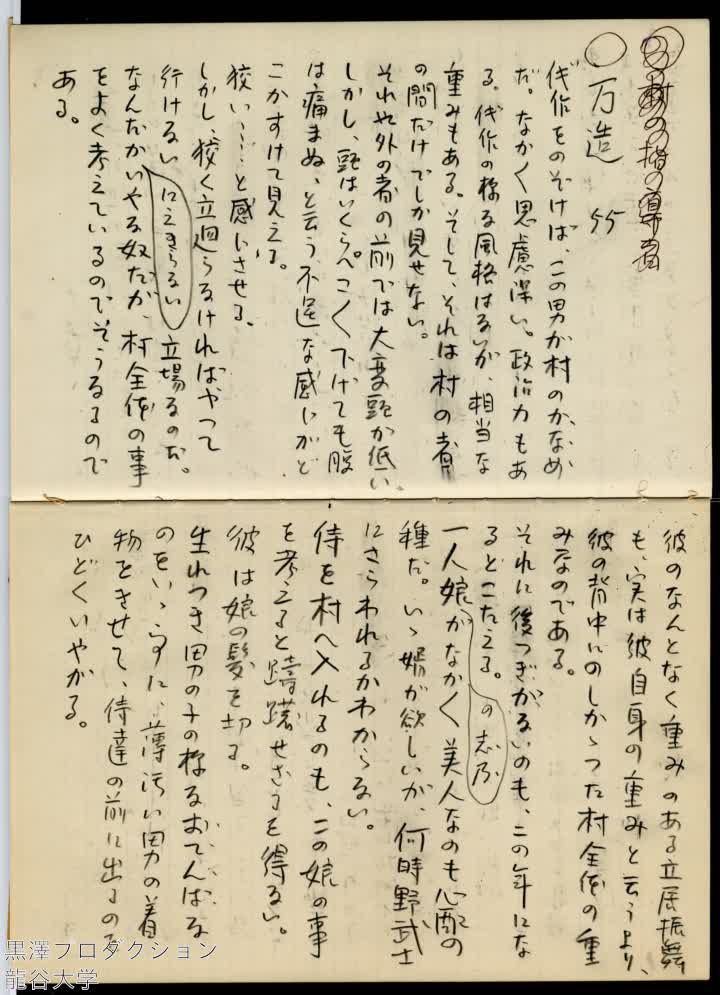 ○万造 55
代作をのぞけば、この男が村のかなめ
だ。なかく思慮深い。政治力もあ
る。代作の様な風格はないが、相当な
重みもある。そして、それは村の者
の間だけでしか見せない。
それ以外の者の前では大変頭が低い。
しかし、頭はいくらぺこく下げても腹
は痛まぬ、と云う不逞な感じがど
こかすけて見える。
狡い……と感じさせる。
しかし、狡く立廻らなければやつて
行けない
に立きらない
立場なのだ。
なんだかいやな奴だが、村全体の事
をよく考えているのでそうなるので
ある。
彼のなんとなく重みのある立居振舞
も、実は彼自身の重みと云うより、
彼の背中にのしかゝつた村全体の重
みなのである。
それに後つぎがないのも、この年にな
るとこたえる。
一人娘
の志乃
がなかく美人なのも心配の
種だ。いゝ婿が欲しいが、何時野武士
にさらわれるかわからない。
侍を村へ入れるのも、この娘の事
を考えると躊躇せざるを得ない。
彼は娘の髪を切る。
生れつき男の子の様なおてんばな
のをいゝ事に、薄汚い男の着
物をきせて、侍達の前に出るのを
ひどくいやがる。
黒澤プロダクション
龍谷大学